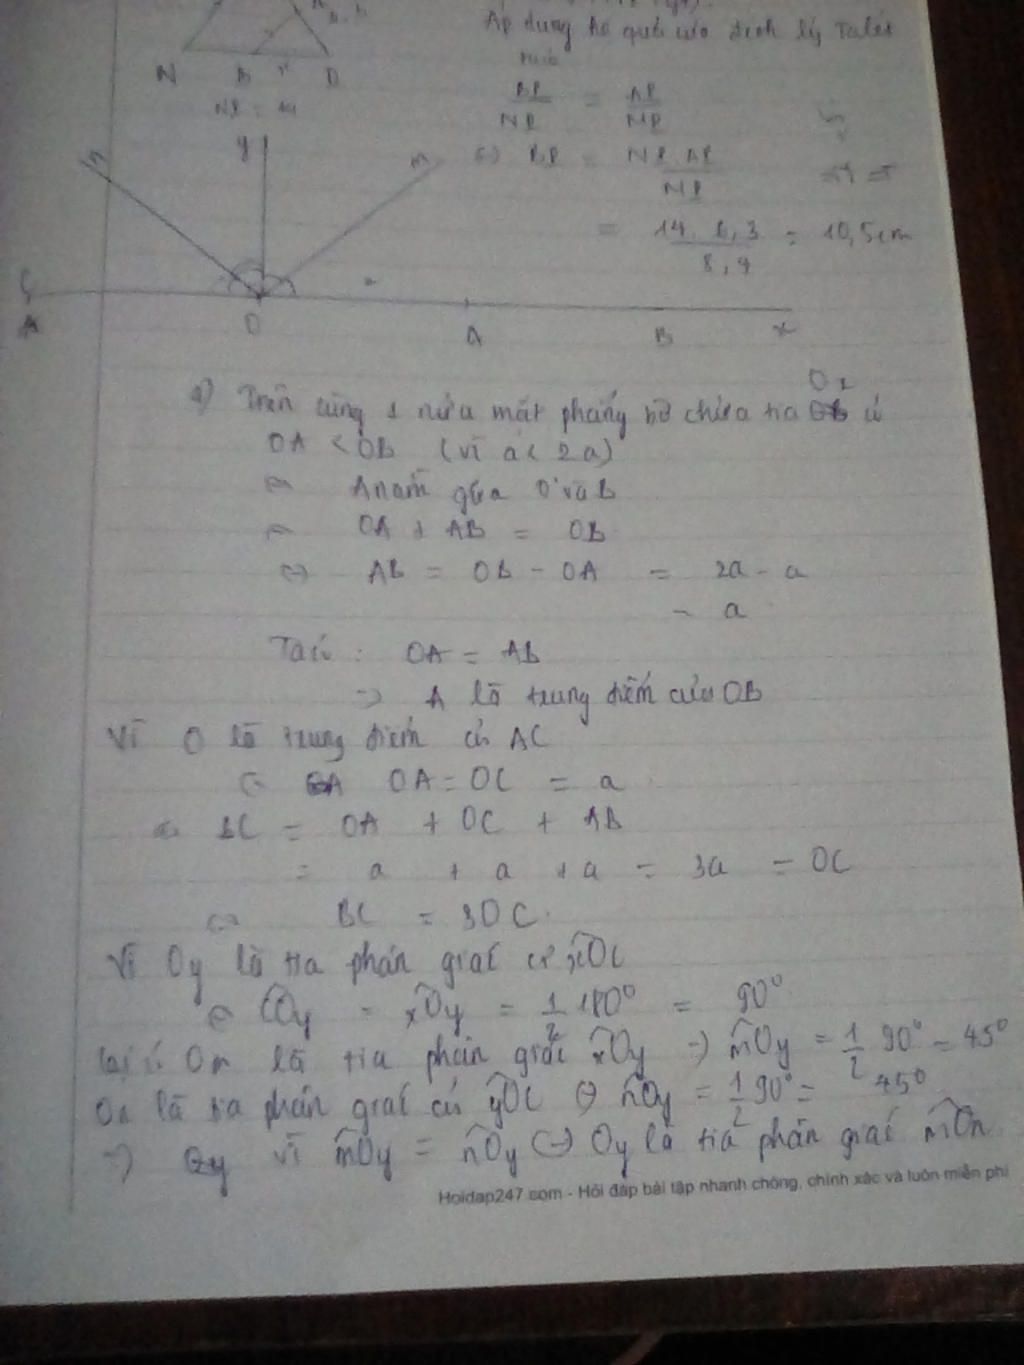 Áp dụng hệ quả của định lý Talét
N B D
NP = 14
BP = AP
NP MP
y
n
m
=) BP = NP. AP
MP
= 14. 6,3 = 10,5cm
8,4
C
O A B x
a) Trên cùng 1 nửa mặt phẳng bờ chứa tia Ox có
OA < OB (vì a < 2a)
A nằm giữa O và B
OA + AB = OB
<=> AB = OB - OA = 2a - a
= a
Ta có: OA = AB
=> A là trung điểm của OB
Vì O là trung điểm củ AC
OA = OC = a
BC = OA + OC + AB
= a + a + a = 3a = OC
<=> BC = 3OC.
Vì Oy là tia phân giác củ xOC
COy = xOy = 1/2 180° = 90°
lại có Om là tia phân giác xOy => mOy = 1/2 90° = 45°
On là tia phân giác củ yOC <=> nOy = 1/2 90° = 45°
=> vì mOy = nOy <=> Oy là tia phân giác mOn
Hoidap247.com - Hỏi đáp bài tập nhanh chóng, chính xác và luôn miễn phí